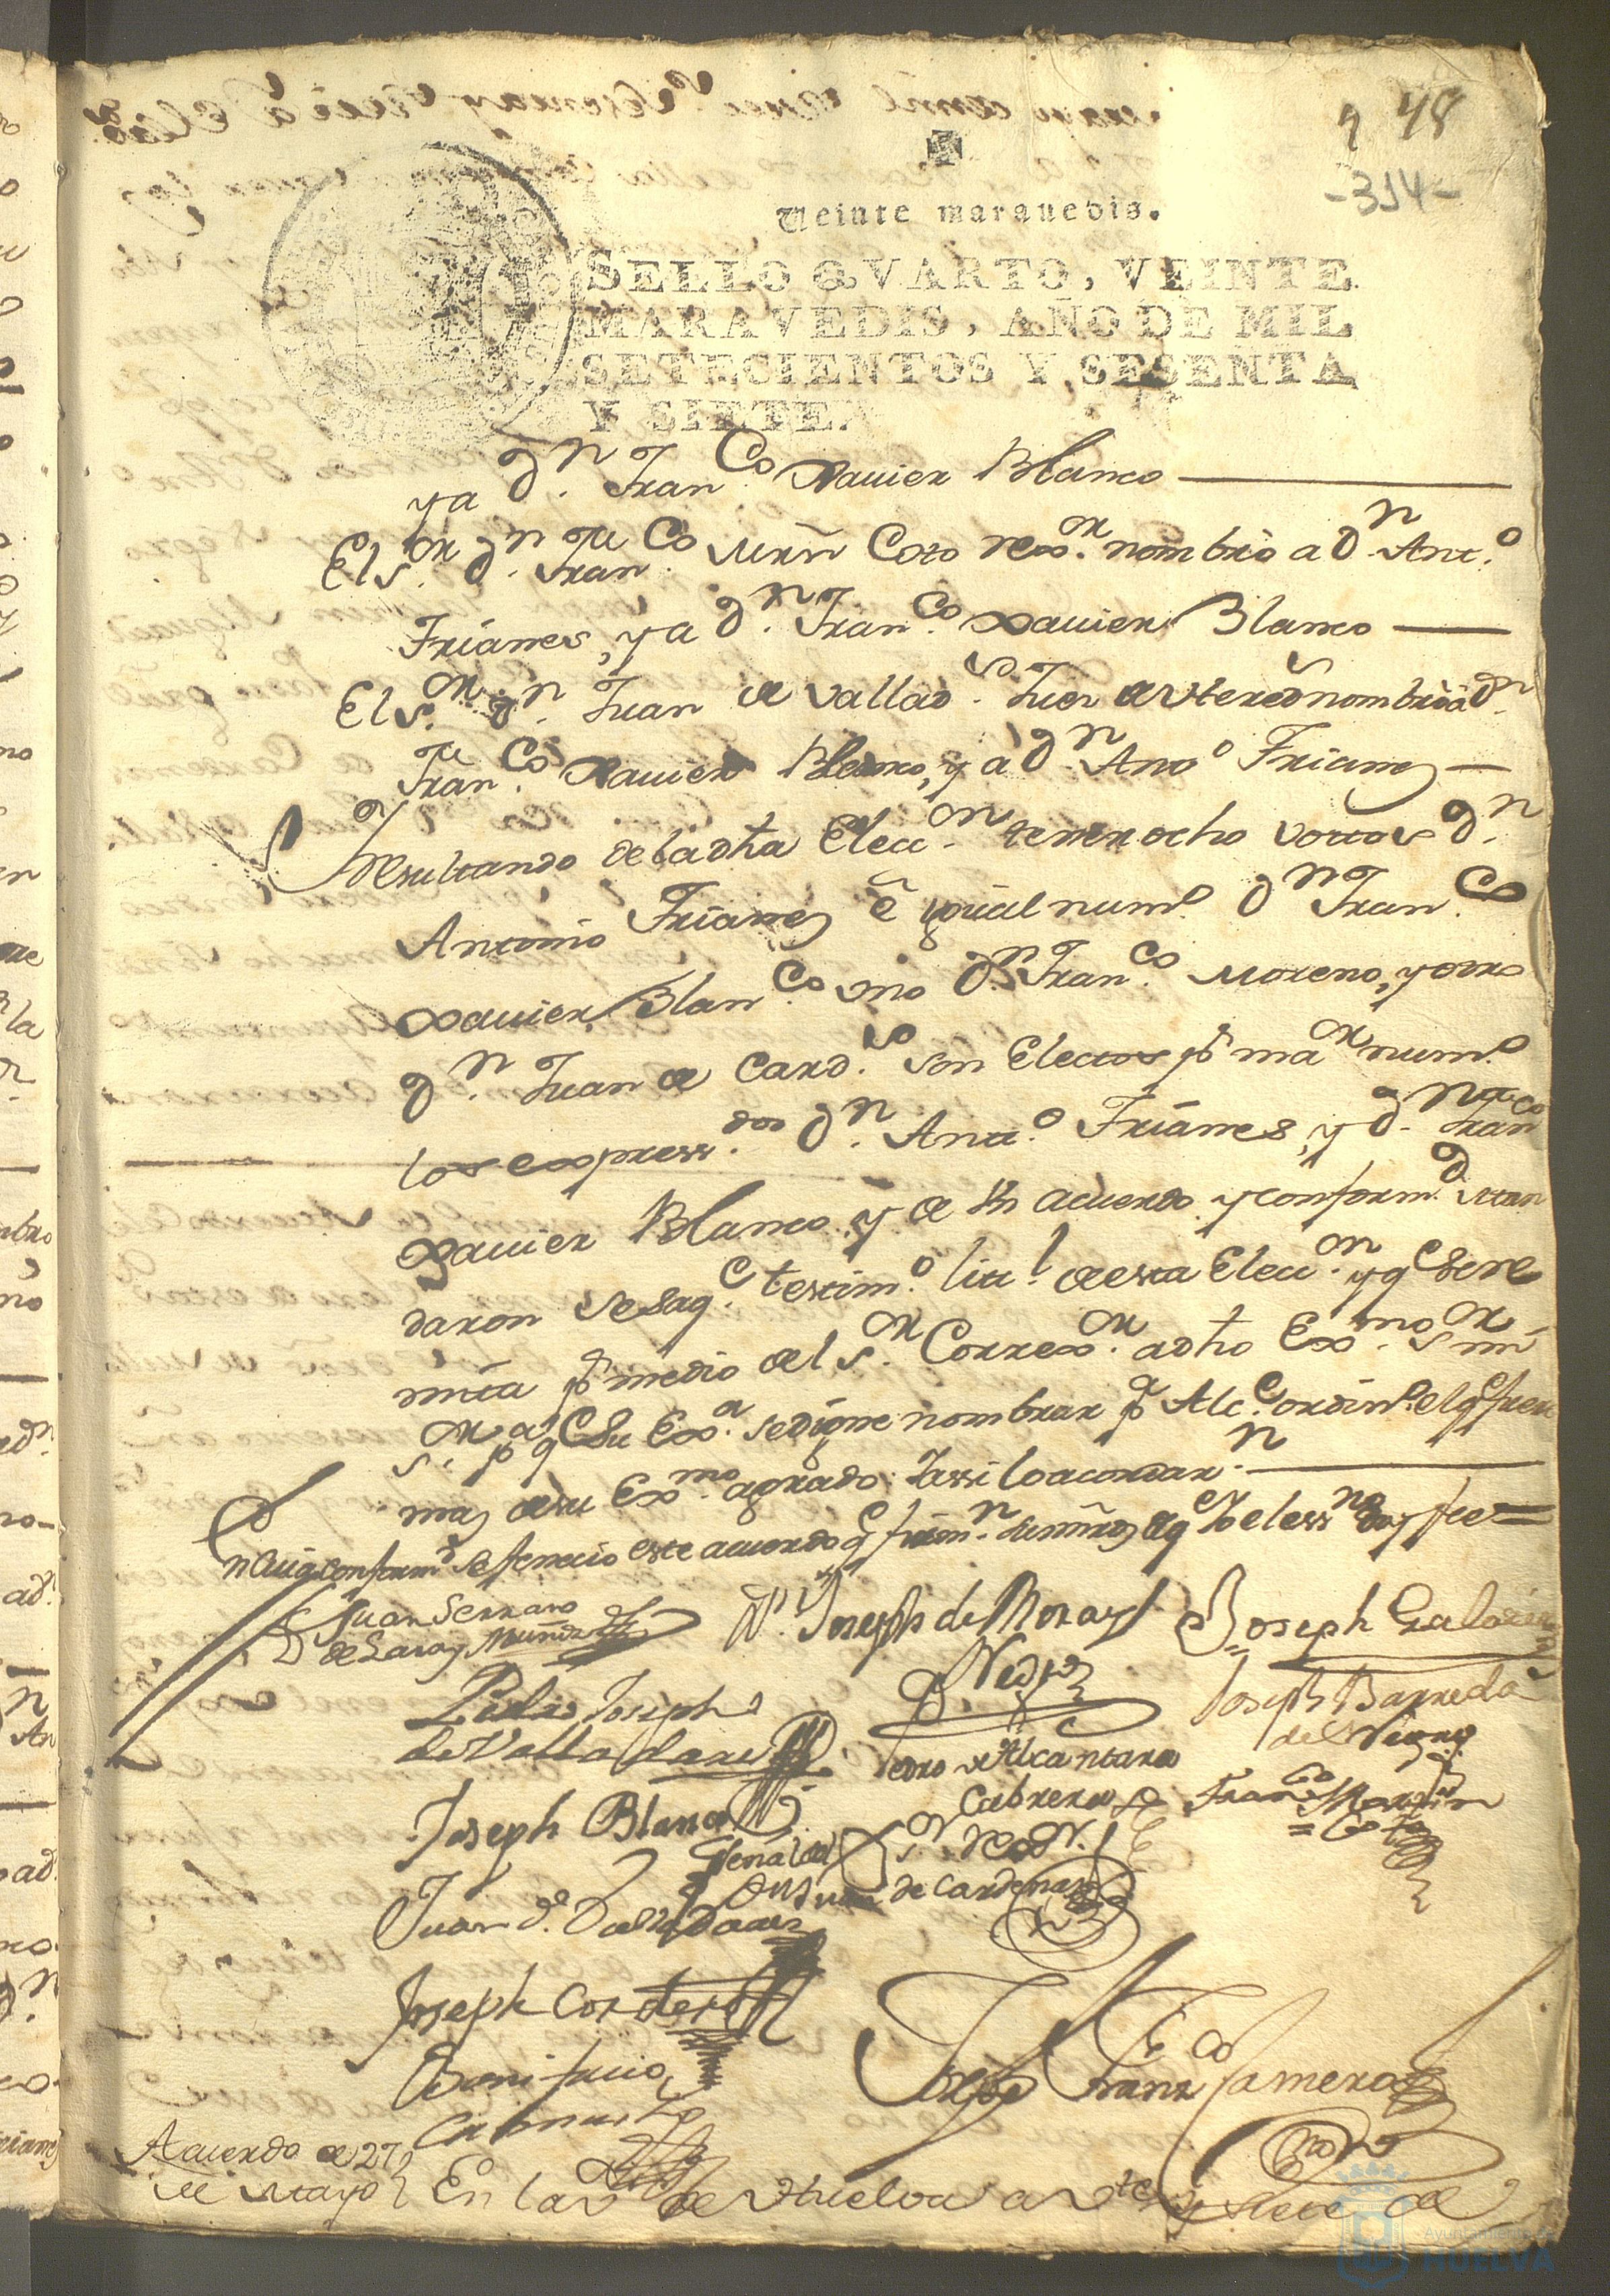 9 48
-314-
Veinte marauedis.
SELLO QVARTO, VEINTE
MARAVEDIS, AÑO DE MIL
SETECIENTOS Y SESENTA
Y SIETE.
y a Dn. Franco. Xauier Blanco
El Sr. Dn. Franco. Mrñ Coto rexor. nombrò a Dn. Anto.
Frianes, y a Dn. Franco. Xauier Blanco
El Sr. Dn. Juan de Vallads. Juez nombrò a Dn.
Franco. Xauier Blanco, y a Dn. Anto Frianes
Resultando de la dha Elecon. tener ocho votos Dn.
Antonio Frianes è ygual numo. Dn Franco
Xauier Blanco. vno Dn. Franco. Moreno, y otro
Dn. Juan de Cards. son Electos pr. mar numo
los expressdos. Dn. Anto. Frianes, y Dn. Franco
Xauier Blanco y de Vn acuerdo y conformd. man
daron se saqe. testimo. litl. de esta Elecon. y qe se re
mita pr medio del Sr. Correxr. a dho Exmo. Sr mi
Sr. pa qe Su Exa. se digne nombrar pr Alce. ordino. el qe fuere
mas de su Exmo. agrado. Y assi lo acordarn.
n cuia conformd se fenecio este acuerdo qe firmn. sus mrds de qe Yo el essno doy fee=
Juan Serrano
de Lara y Muñoz
Dn. Joseph de Mora y
Negro
Joseph Galdin
Pedro Joseph
de Valladares
Joseph Barreda
del Negro
Pedro de Alcantara
Cabrera
Franco Martin
=Coto
Joseph Blanco
Juan de Cardenas
Juan de Valladares
Joseph Cordero
Bonifacio
Joseph Franco Camero
Acuerdo de 27
de Mayo
En la Va de Huelva a Vte y siete de
Ayuntamiento de
HUELVA